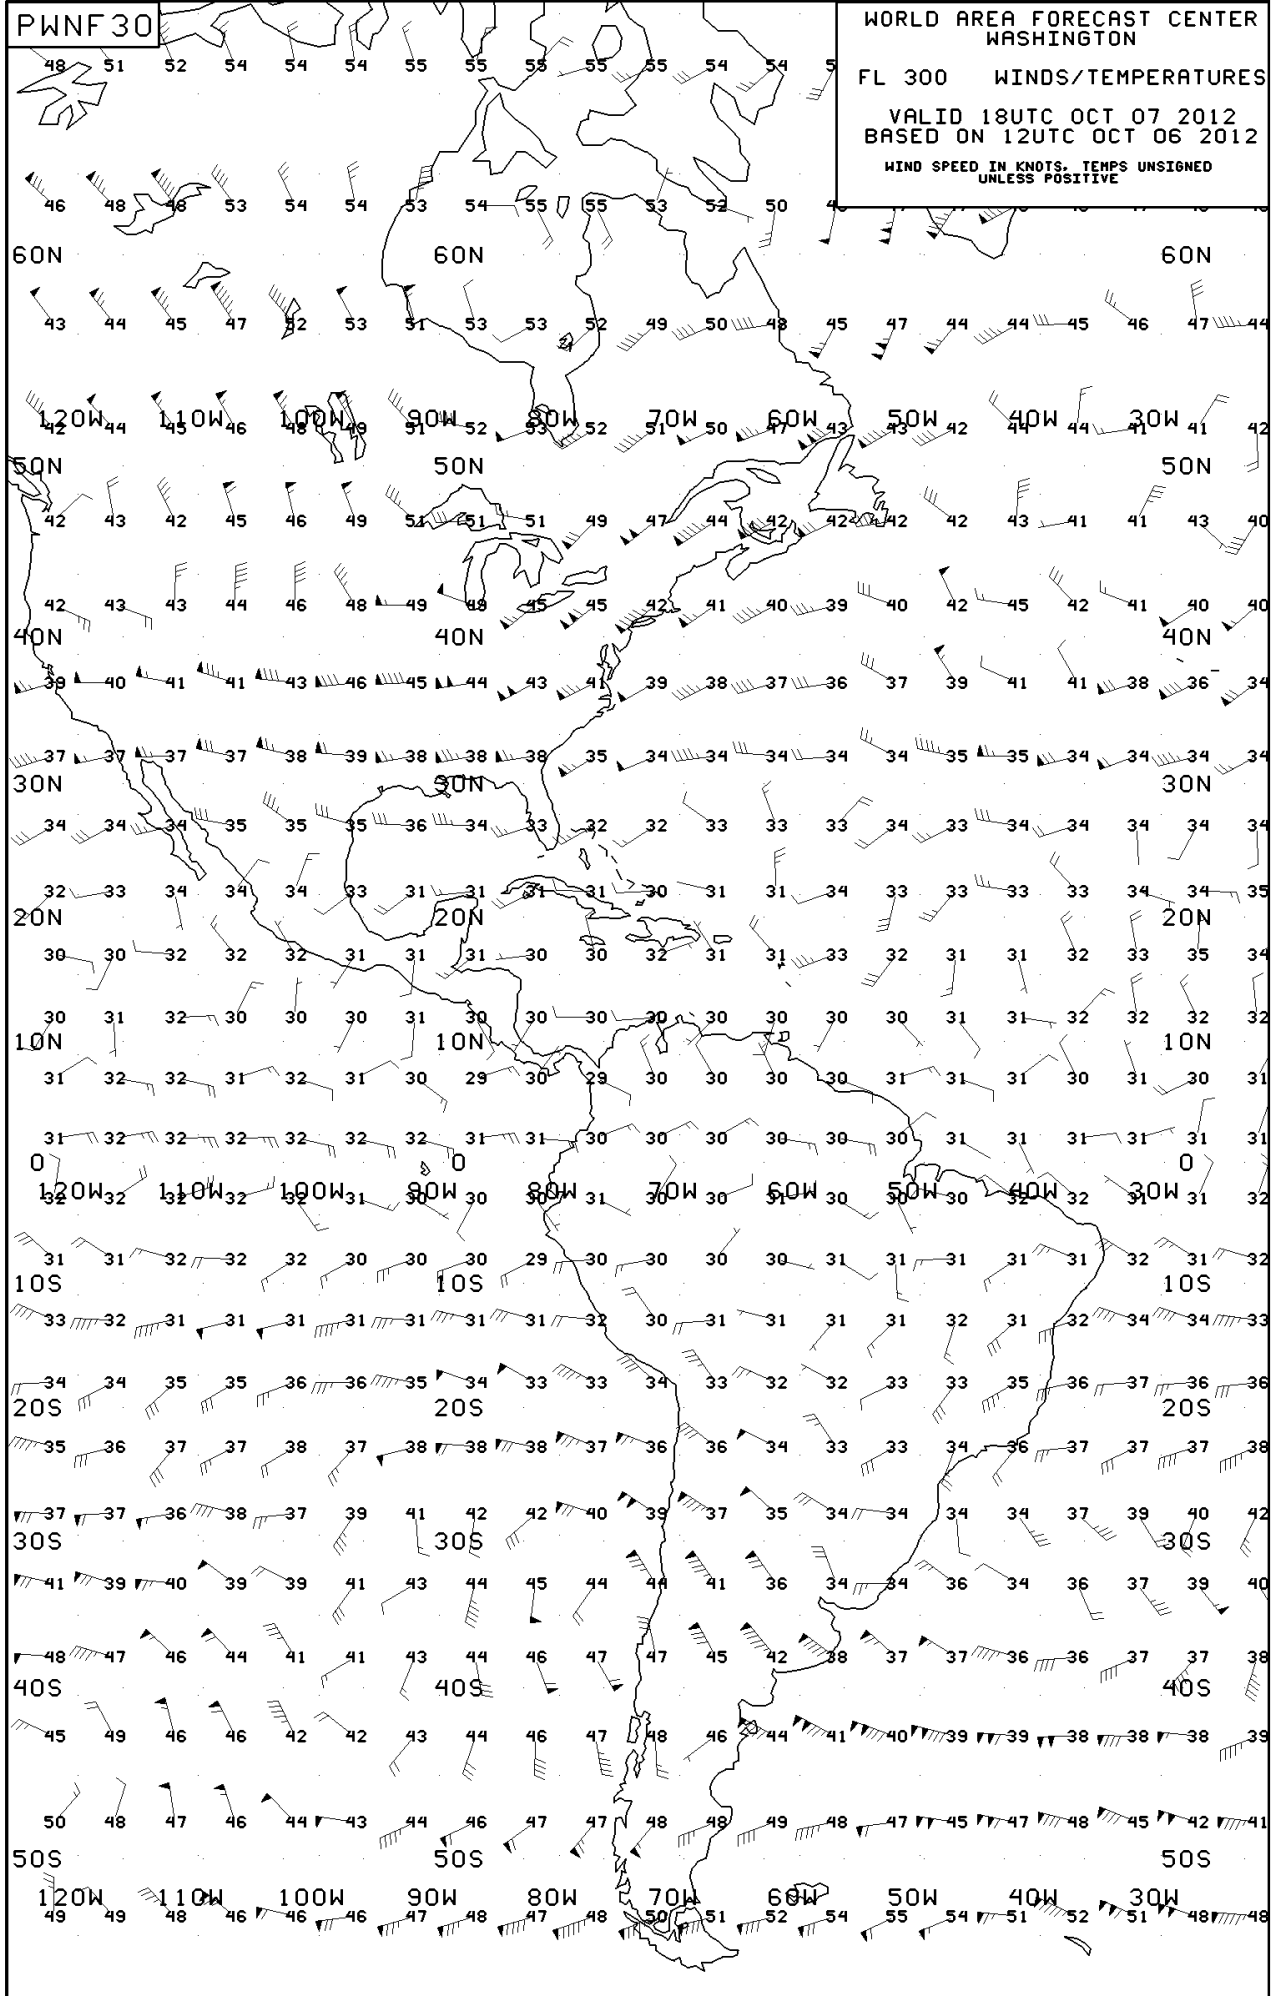 PWNF30
WORLD AREA FORECAST CENTER
WASHINGTON
FL 300 WINDS/TEMPERATURES
VALID 18UTC OCT 07 2012
BASED ON 12UTC OCT 06 2012
WIND SPEED IN KNOTS, TEMPS UNSIGNED
UNLESS POSITIVE
48 51 52 54 54 54 55 55 55 55 55 54 54
46 48 48 53 54 54 53 54 55 55 53 52 50
60N 60N 60N
43 44 45 47 52 53 51 53 53 52 49 50 48 45 47 44 44 45 46 47 44
120W 110W 100W 90W 80W 70W 60W 50W 40W 30W
42 44 45 46 48 49 51 52 53 52 51 50 47 43 43 42 44 44 41 41 42
50N 50N 50N
42 43 42 45 46 49 51 51 51 49 47 44 42 42 42 42 43 41 41 43 40
42 43 43 44 46 48 49 49 45 45 42 41 40 39 40 42 45 42 41 40 40
40N 40N 40N
39 40 41 41 43 46 45 44 43 41 39 38 37 36 37 39 41 41 38 36 34
37 37 37 37 38 39 38 38 38 35 34 34 34 34 34 35 35 34 34 34 34
30N 30N 30N
34 34 34 35 35 35 36 34 33 32 32 33 33 33 34 33 34 34 34 34 34
32 33 34 34 34 33 31 31 31 31 30 31 31 34 33 33 33 33 34 34 35
20N 20N 20N
30 30 32 32 32 31 31 31 30 30 32 31 31 33 32 31 31 32 33 35 34
30 31 32 30 30 30 31 30 30 30 30 30 30 30 30 31 31 32 32 32 32
10N 10N 10N
31 32 32 31 32 31 30 29 30 29 30 30 30 30 31 31 31 30 31 30 31
31 32 32 32 32 32 32 31 31 30 30 30 30 30 30 31 31 31 31 31 31
0 0 0
120W 110W 100W 90W 80W 70W 60W 50W 40W 30W
32 32 32 32 32 31 30 30 30 31 30 30 31 30 30 30 32 32 31 31 32
31 31 32 32 32 30 30 30 29 30 30 30 30 31 31 31 31 31 32 31 32
10S 10S 10S
33 32 31 31 31 31 31 31 31 32 30 31 31 31 31 32 31 32 34 34 33
34 34 35 35 36 36 35 34 33 33 34 33 32 32 33 33 35 36 37 36 36
20S 20S 20S
35 36 37 37 38 37 38 38 38 37 36 36 34 33 33 34 36 37 37 37 38
37 37 36 38 37 39 41 42 42 40 39 37 35 34 34 34 34 37 39 40 42
30S 30S 30S
41 39 40 39 39 41 43 44 45 44 44 41 36 34 34 36 34 36 37 39 40
48 47 46 44 41 41 43 44 46 47 47 45 42 38 37 37 36 36 37 37 38
40S 40S 40S
45 49 46 46 42 42 43 44 46 47 48 46 44 41 40 39 39 38 38 38 39
50 48 47 46 44 43 44 46 47 47 48 48 49 48 47 45 47 48 45 42 41
50S 50S 50S
120W 110W 100W 90W 80W 70W 60W 50W 40W 30W
49 49 48 46 46 46 47 48 47 48 50 51 52 54 55 54 51 52 51 48 48